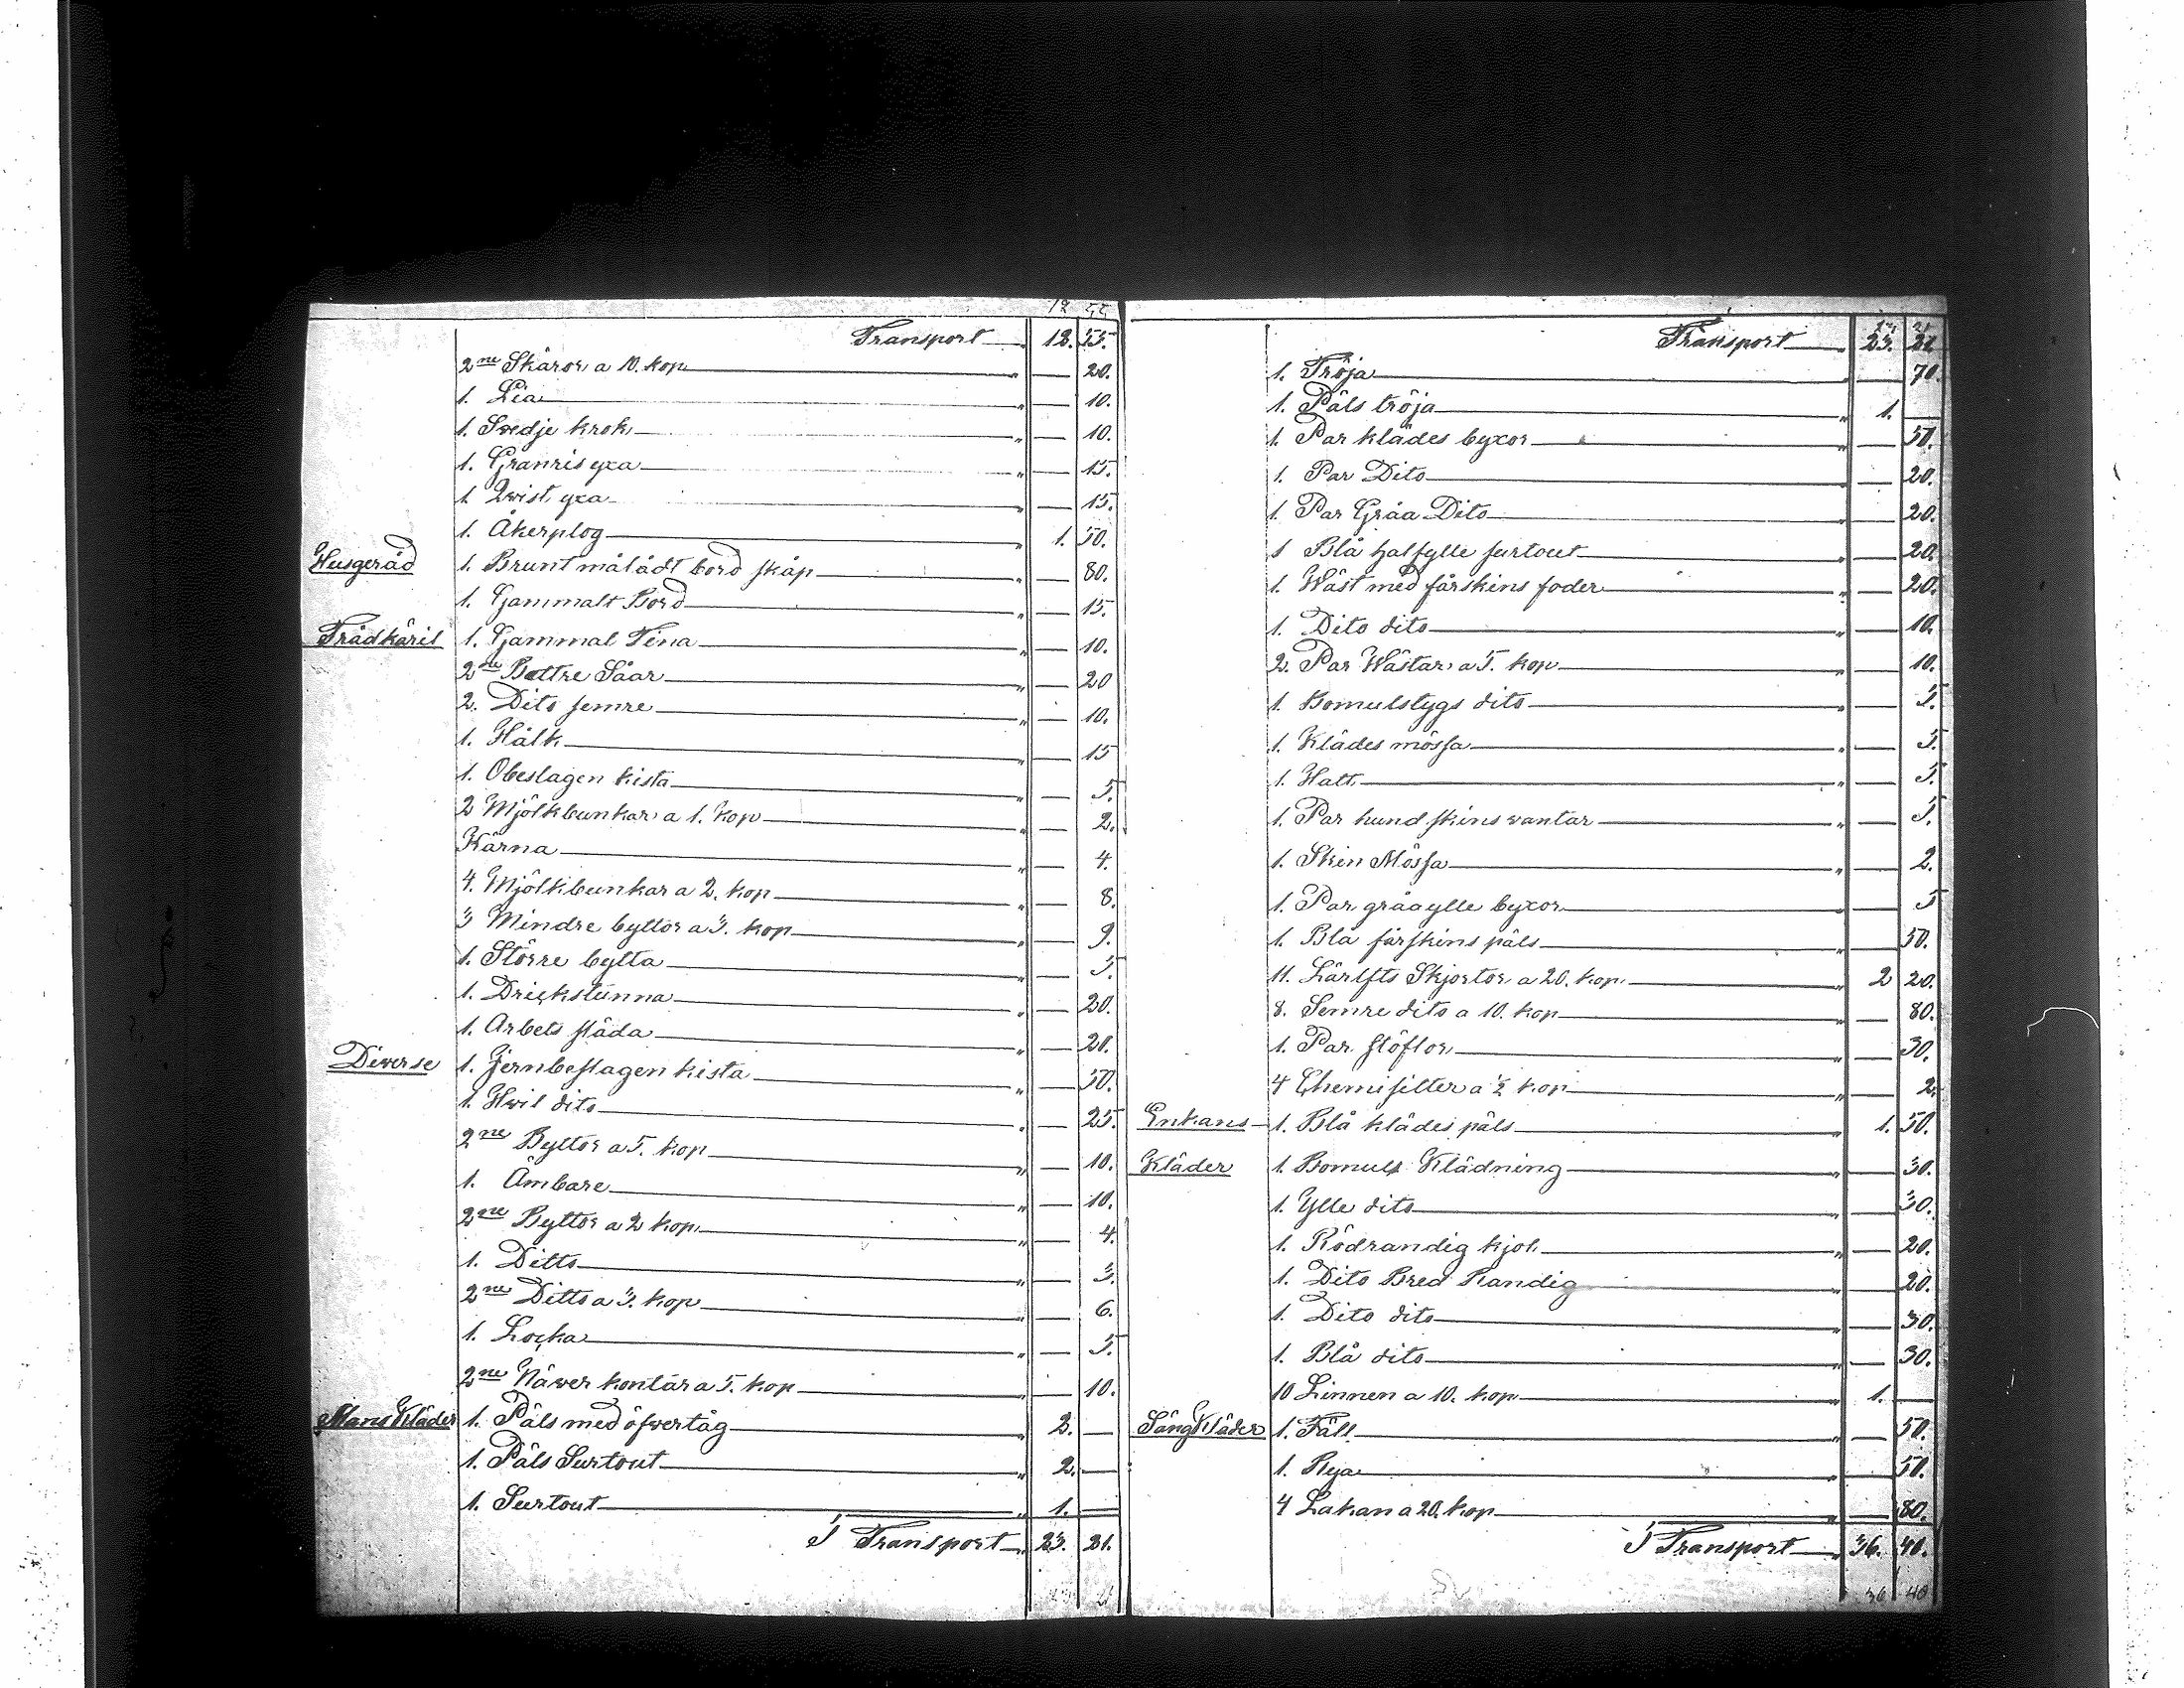 12 55
Transport 12. 55.
2ne Skäror a 10. kop 20.
1. Lia 10.
1. Svedje krok 10.
1. Granris yxa 15.
1. Qvist yxa 15.
1. Åkerplog 1. 50.
Husgeråd 1. Brunt målådt bord skåp 80.
1. Gammalt Bord 15.
Trädkäril 1. Gammal Tina 10.
2ne Bättre Såar 20
2. Dito semre 10.
1. Hålk 15
1. Obeslagen kista 5.
2 Mjölkbunkar a 1. kop 2.
Kärna 4.
4. Mjölkbunkar a 2. kop 8.
3 Mindre byttor a 3. kop 9.
1. Större bytta 5.
1. Drickstunna 20.
1. Arbets släda 20.
Diverse 1. Jernbeslagen kista 50.
1. Hvit dito 25.
2ne Byttor a 5. kop 10.
1. Ämbare 10.
2ne Byttor a 2 kop 4.
1. Ditto 3.
2ne Ditto a 3. kop 6.
1. Locka 5.
2ne Näver kontar a 5. kop 10.
Mans Kläder 1. Päls med öfvertåg 2.
1. Päls Surtout 2.
1. Surtout 1.
I Transport 23. 21.
Transport 23. 21
1. Tröja 70.
1. Päls tröja 1.
1. Par klädes byxor 50.
1. Par Dito 20.
1. Par Gråa Dito 20.
1 Blå halfylle surtout 20.
1. Wäst med fårskins foder 20.
1. Dito dito 10.
2. Par Wästar a 5. kop 10.
1. Bomulstygs dito 5.
1. Klädes mössa 5.
1. Hatt 5.
1. Par hundskins vantar 5.
1. Skin Mössa 2.
1. Par gråa ylle byxor 5
1. Blå fårskins päls 50.
11. Lärfts Skjortor a 20. kop. 2 20.
8. Semre dito a 10. kop 80.
1. Par stöflor 30.
4 Chemisetter a ½ kop 2.
Enkans 1. Blå klädes päls 1. 50.
Kläder 1. Bomuls Klädning 30.
1. Ylle dito 30.
1. Rödrandig kjol 20.
1. Dito Bred Randig 20.
1. Dito dito 30.
1. Blå dito 30.
10 Linnen a 10. kop 1.
Säng Kläder 1. Fäll 50.
1. Rya 50.
4 Lakan a 20. kop 80.
I Transport 36. 40.
36 40